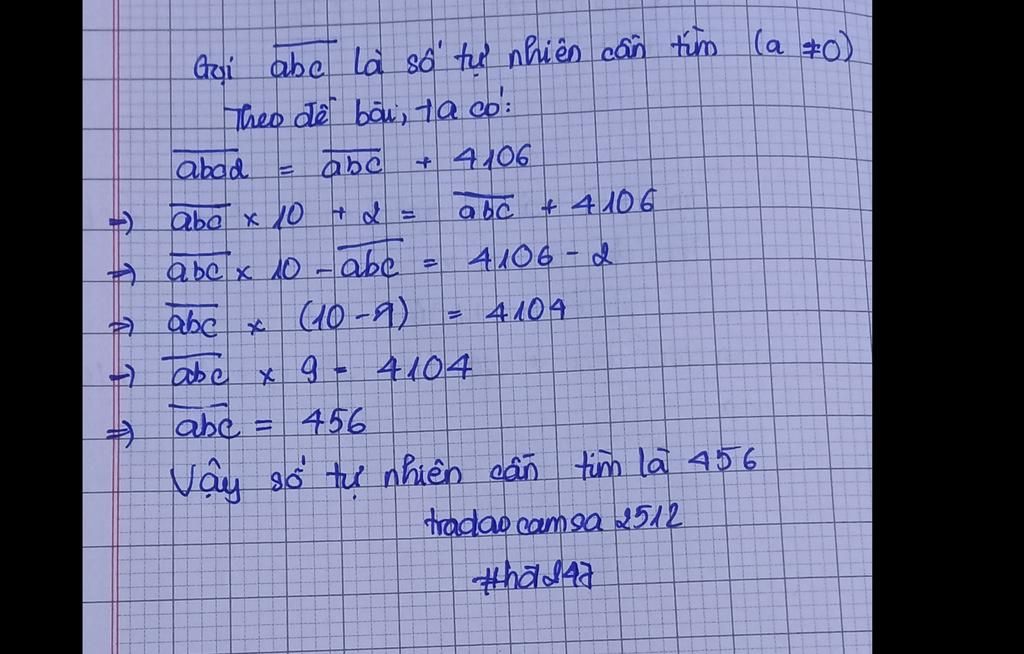 Gọi abc là số tự nhiên cần tìm (a ≠0)
Theo đề bài, ta có:
abc2 = abc + 4106
=) abc × 10 + 2 = abc + 4106
=) abc × 10 - abc = 4106 - 2
=) abc × (10 - 1) = 4104
=) abc × 9 = 4104
=) abc = 456
Vậy số tự nhiên cần tìm là 456
tradaocamsa 2512